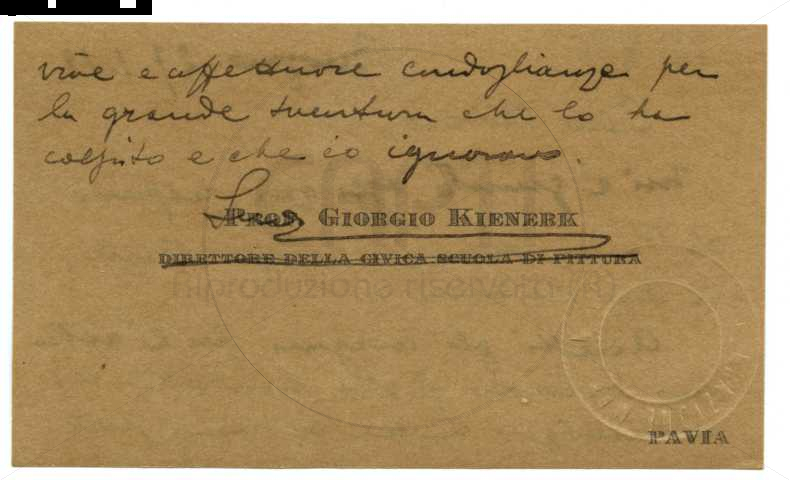 vive e affettuose condoglianze per
la grande sventura che lo ha
colpito e che io ignoravo.
PROF. GIORGIO KIENERK
DIRETTORE DELLA CIVICA SCUOLA DI PITTURA
riproduzione riservata
PAVIA